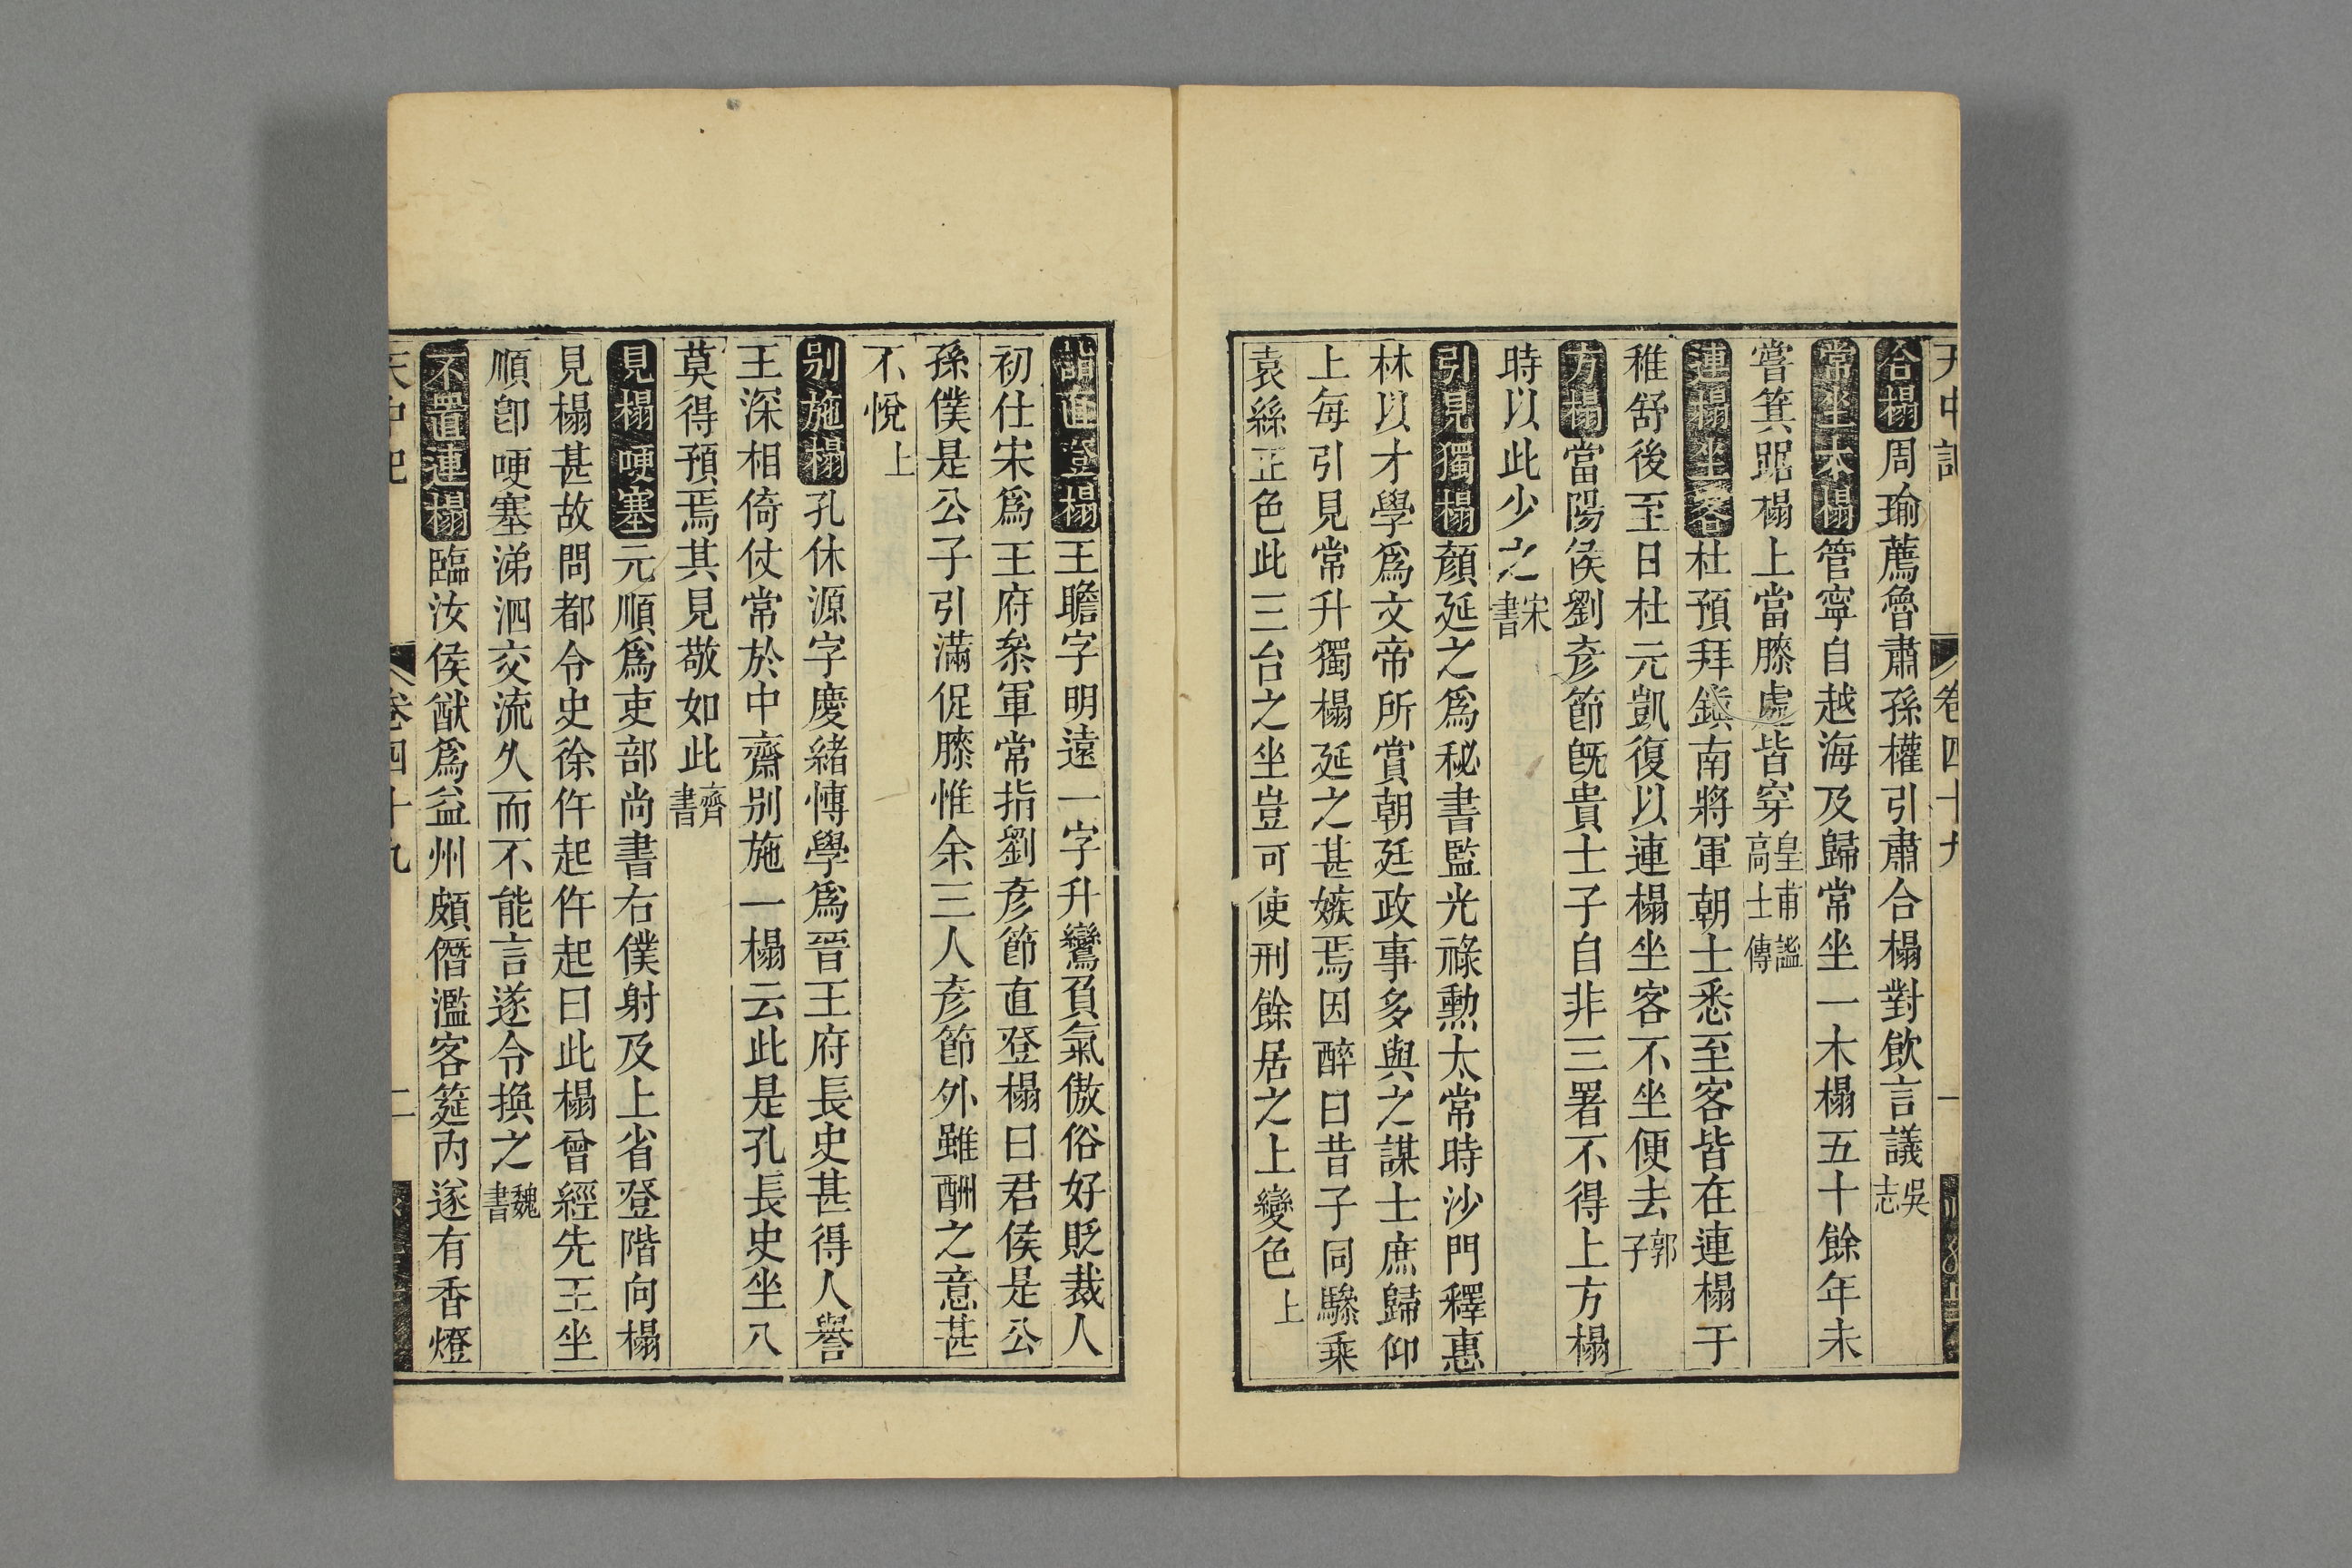 天中記 卷四十九 一
合榻周瑜薦魯肅孫權引肅合榻對飲言議吳志
常坐木榻管寧自越海及歸常坐一木榻五十餘年未
嘗箕踞榻上當膝處皆穿皇甫謐高士傳
連榻坐客杜預拜鎮南將軍朝士悉至客皆在連榻于
稚舒後至曰杜元凱復以連榻坐客不坐便去郭子
方榻當陽侯劉彥節既貴士子自非三署不得上方榻
時以此少之宋書
引見獨榻顏延之為秘書監光祿勲太常時沙門釋惠
林以才學為文帝所賞朝廷政事多與之謀士庶歸仰
上每引見常升獨榻延之甚嫉焉因醉曰昔子同驂乘
袁絲正色此三台之坐豈可使刑餘居之上變色上
直登榻王瞻字明遠一字升鸞負氣傲俗好貶裁人
初仕宋為王府叅軍常指劉彥節直登榻曰君侯是公
孫僕是公子引滿促膝惟余三人彥節外雖酬之意甚
不悅上
别施榻孔休源字慶緒愽學為晋王府長史甚得人譽
王深相倚仗常於中齋别施一榻云此是孔長史坐人
莫得預焉其見敬如此齊書
見榻哽塞元順為吏部尚書右僕射及上省登階向榻
見榻甚故問都令史徐仵起仵起曰此榻曾經先王坐
順卽哽塞涕泗交流久而不能言遂令換之魏書
不置連榻臨汝侯猷為益州頗僭濫客筵内遂有香燈
天中記 卷四十九 二